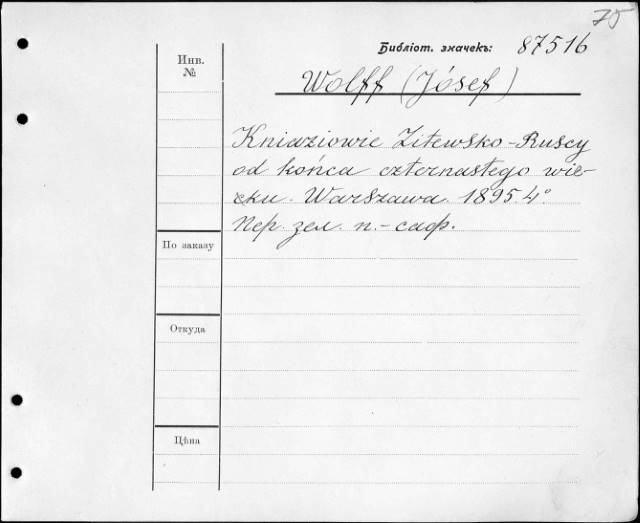 75
Библіот. значекъ: 87516
Инв. №
Wolff (Józef)
Kniaziowie Litewsko-Ruscy
od końca czternastego wie-
ku. Warszawa. 1895. 4°
Пер. зел. п.-саф.
По заказу
Откуда
Цѣна